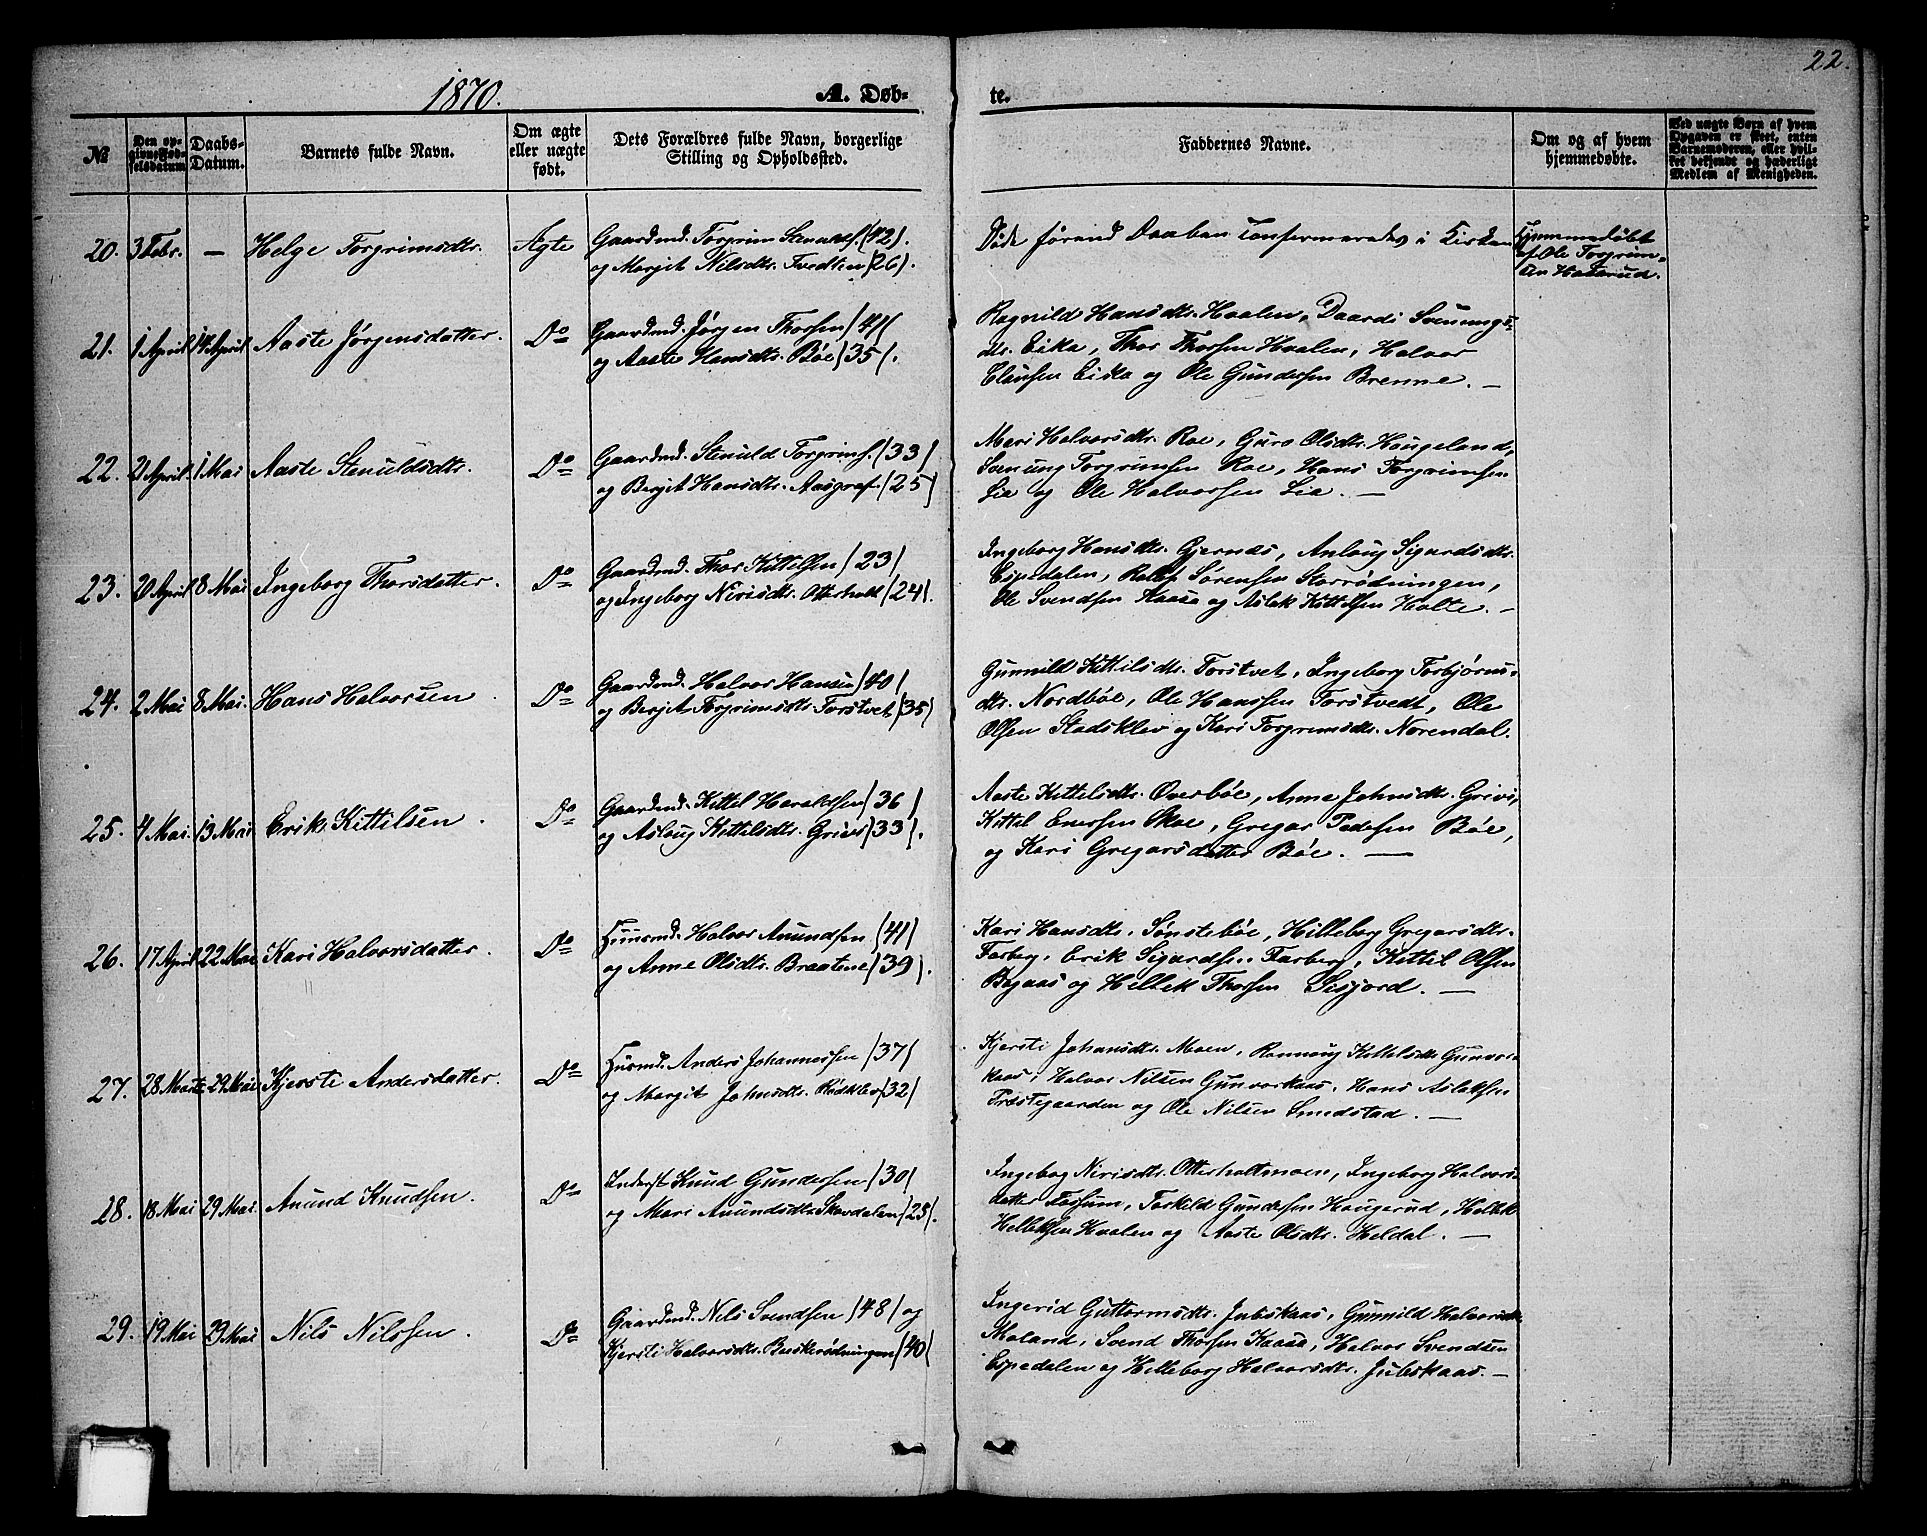 22.
1870.
A. Døb-
te.
№
Den op-
givne Fød-
selsdatum
Daabs-
Datum.
Barnets fulde Navn.
Om ægte
eller uægte
født.
Dets Forældres fulde Navn, borgerlige
Stilling og Opholdssted.
Faddernes Navne.
Om og af hvem
hjemmedøbte.
Ved uægte Børn af hvem
Opgaven er skeet, enten
Barnemoderen, eller hvil-
ket bekjendt og hæderligt
Medlem af Menigheden.
20. 3 Febr. — Helge Torgrimsdtr. Ægte
Gaardmd. Torgrim (42).
og Margit Nilsdtr. Tvedten (26).
Døde førend Daaben confirmeredes i Kirken
Hjemmedøbt
af Ole Torgrim-
sen
21. 1 April 14 April Aaste Jørgensdatter. Do
Gaardmd. Jørgen Thorsen (41)
og Aaste Hansdtr. Bøe (35).
Ragnild Hansdtr. Hvalen, Svenungs-
dtr. Eika, Thor Thorsen Hvalen, Halvor
Clausen Eika og Ole Gundersen Brenne. —
22. 21 April 1 Mai Aaste Stenuldsdtr. Do
Gaardmd. Stenuld Torgrims. (33)
og Bergit Hansdtr. Aasgraf (25)
Mari Halvorsdtr. Roe, Guro Olsdtr. Haugeland,
Svenung Torgrimsen Roe, Hans Torgrimsen
Lia og Ole Halvorsen Lia. —
23. 20 April 8 Mai Ingeborg Thorsdatter. Do
Gaardmd. Thor Kittilsen (23)
og Ingeborg Nirisdtr. Otterholt (24).
Ingeborg Hansdtr. Gjernæs, Anlaug Sigurdsdtr.
Espedalen, Rollef Sørensen Storrødningen,
Ole Svendsen Kaasa og Aslak Kittilsen Holte. —
24. 2 Mai 8 Mai. Hans Halvorsen Do
Gaardmd. Halvor Hansen (40)
og Bergit Torgrimsdtr. Torstvet (35)
Gunnild Kittilsdtr. Torstvet, Ingeborg Torbjørns-
dtr. Nordbøe, Ole Hanssen Torstvedt, Ole
Olsen Stadsklev og Kari Torgrimsdtr. Norendal.
25. 4 Mai. 13 Mai Erik Kittilsen. Do
Gaardmd. Kittil Haraldsen (36)
og Aslaug Kittilsdtr. Grivi (33).
Aaste Kittilsdtr. Overbøe, Anne Johnsdtr. Grivi,
Kittil Enersen Moe, Gregar Pedersen Bøe,
og Kari Gregarsdatter Bøe. —
26. 17 April 22 Mai Kari Halvorsdatter. Do
Huusmd. Halvor Anundsen (41)
og Anne Olsdtr. Braatene (39).
Kari Hansdtr. Sønstebøe, Hilleborg Gregarsdtr.
Farberg, Erik Sigurdsen Farberg, Kittil Olsen
Bagaas og Hellek Thorsen Sisjord. —
27. 28 Marts 29 Mai Kjerste Andersdatter. Do
Husmd. Anders Johannessen (37)
og Margit Johnsdtr. Rødklev (32)
Kjersti Johansdtr. Moen, Rannaug Kittilsdtr. Gunvor-
kaas, Halvor Nilsen Gunvorkaas, Hans Aslaksen
Præstegaarden og Ole Nilsen Smedstad. —
28. 18 Mai 29 Mai. Anund Knudsen. Do
Inderst Knud Gundersen (30)
og Mari Anundsdtr. Skordalen (25).
Ingebog Nirisdtr. Otterholtmoen, Ingeborg Halvors-
datter Fossum, Torkild Gundersen Haugerud, Hellek
Helleksen Hvalen og Aaste Olsdtr. Heldal. —
29. 19 Mai 29 Mai Nils Nilssen. Do
Gaardmd. Nils Svendsen (48) og
Kjersti Halvorsdtr. Buskerødningen (40)
Ingerid Guttormsdtr. Jubskaas, Gunnild Halvorsdtr.
Moland, Svend Thorsen Kaasa, Halvor Svendsen
Espedalen og Hilleborg Halvorsdtr. Jubskaas. —